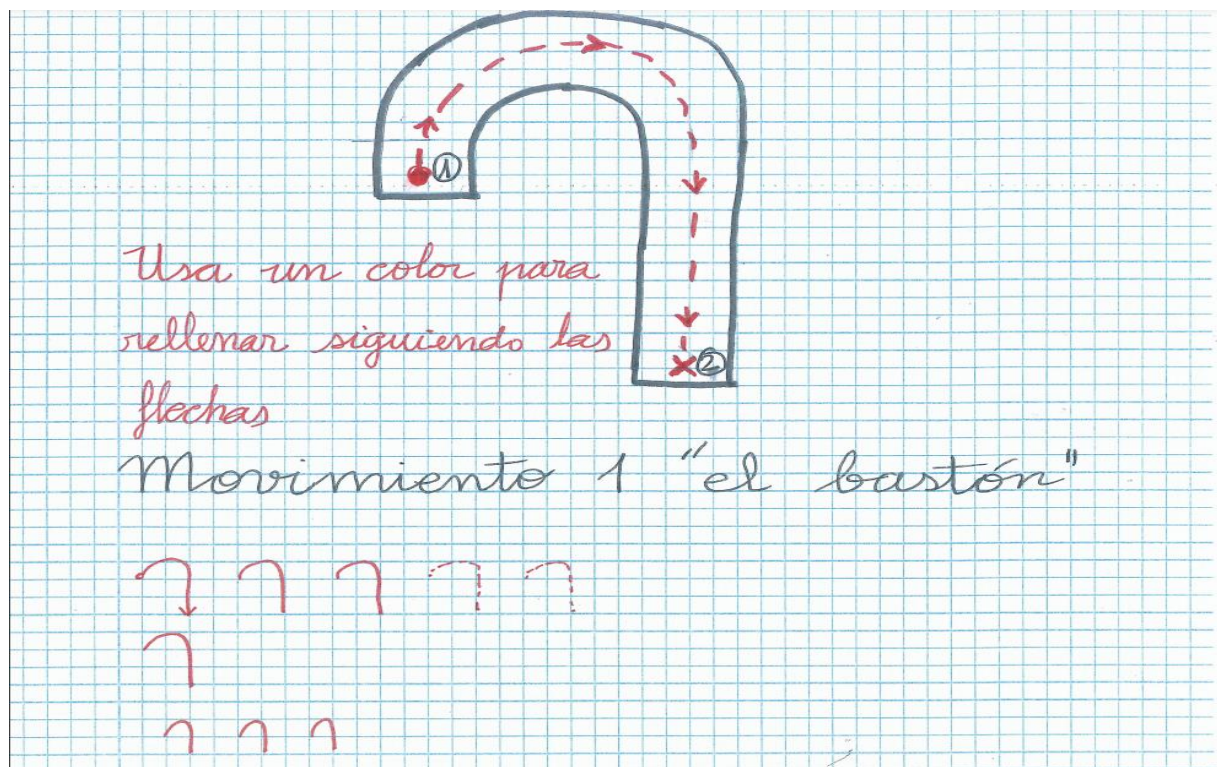 1
2
Usa un color para
rellenar siguiendo las
flechas
Movimiento 1 "el bastón"